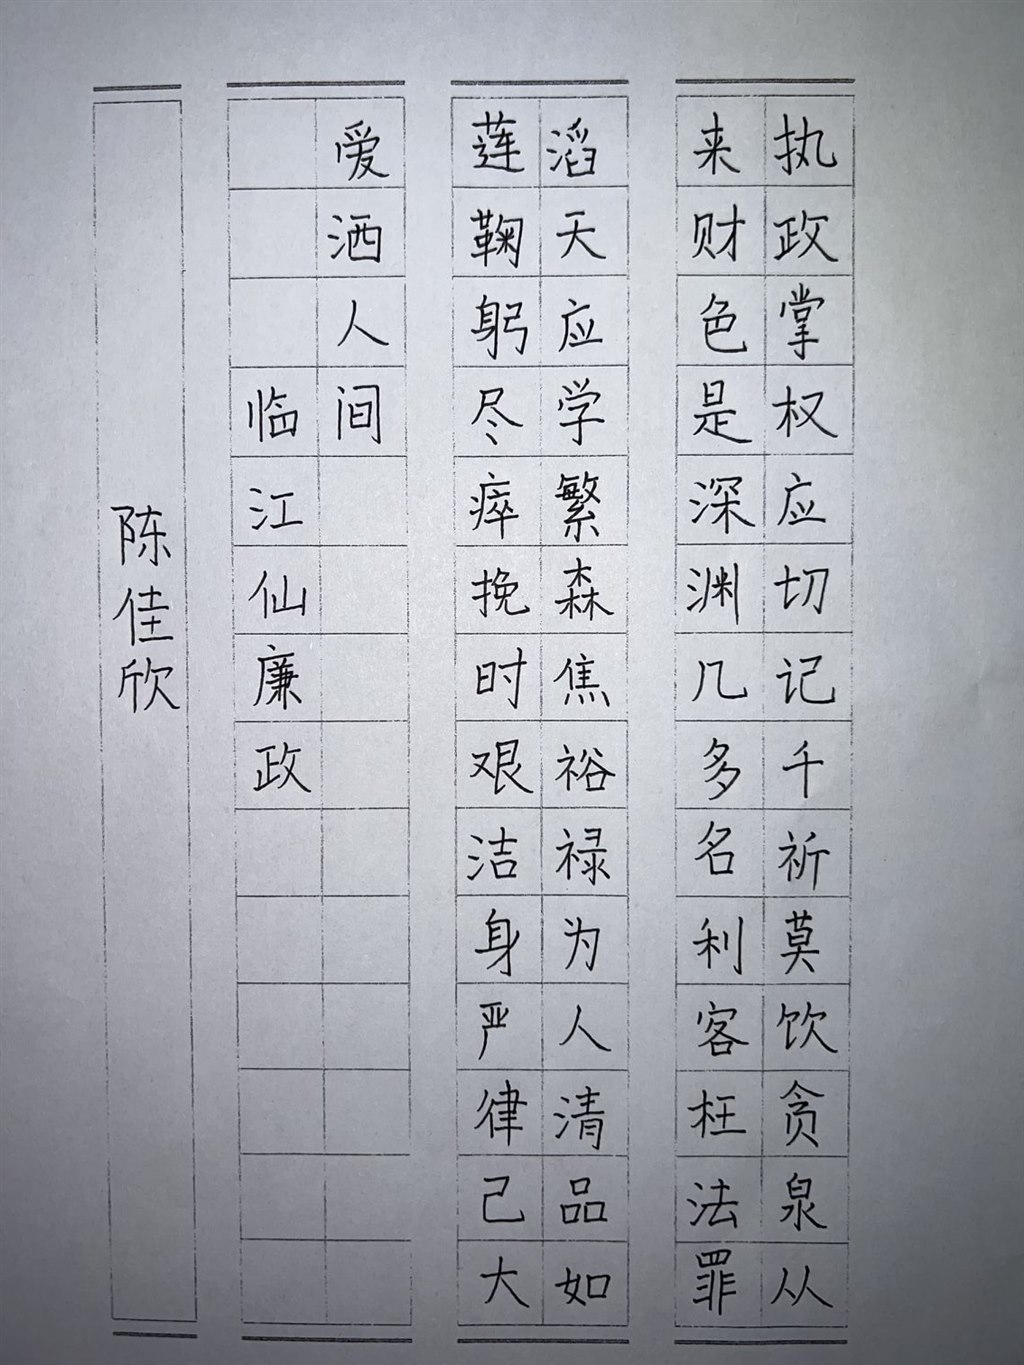 执政掌权应切记千祈莫饮贪泉从
来财色是深渊几多名利客枉法罪
滔天应学繁森焦裕禄为人清品如
莲鞠躬尽瘁挽时艰洁身严律己大
爱洒人间
临江仙廉政
陈佳欣